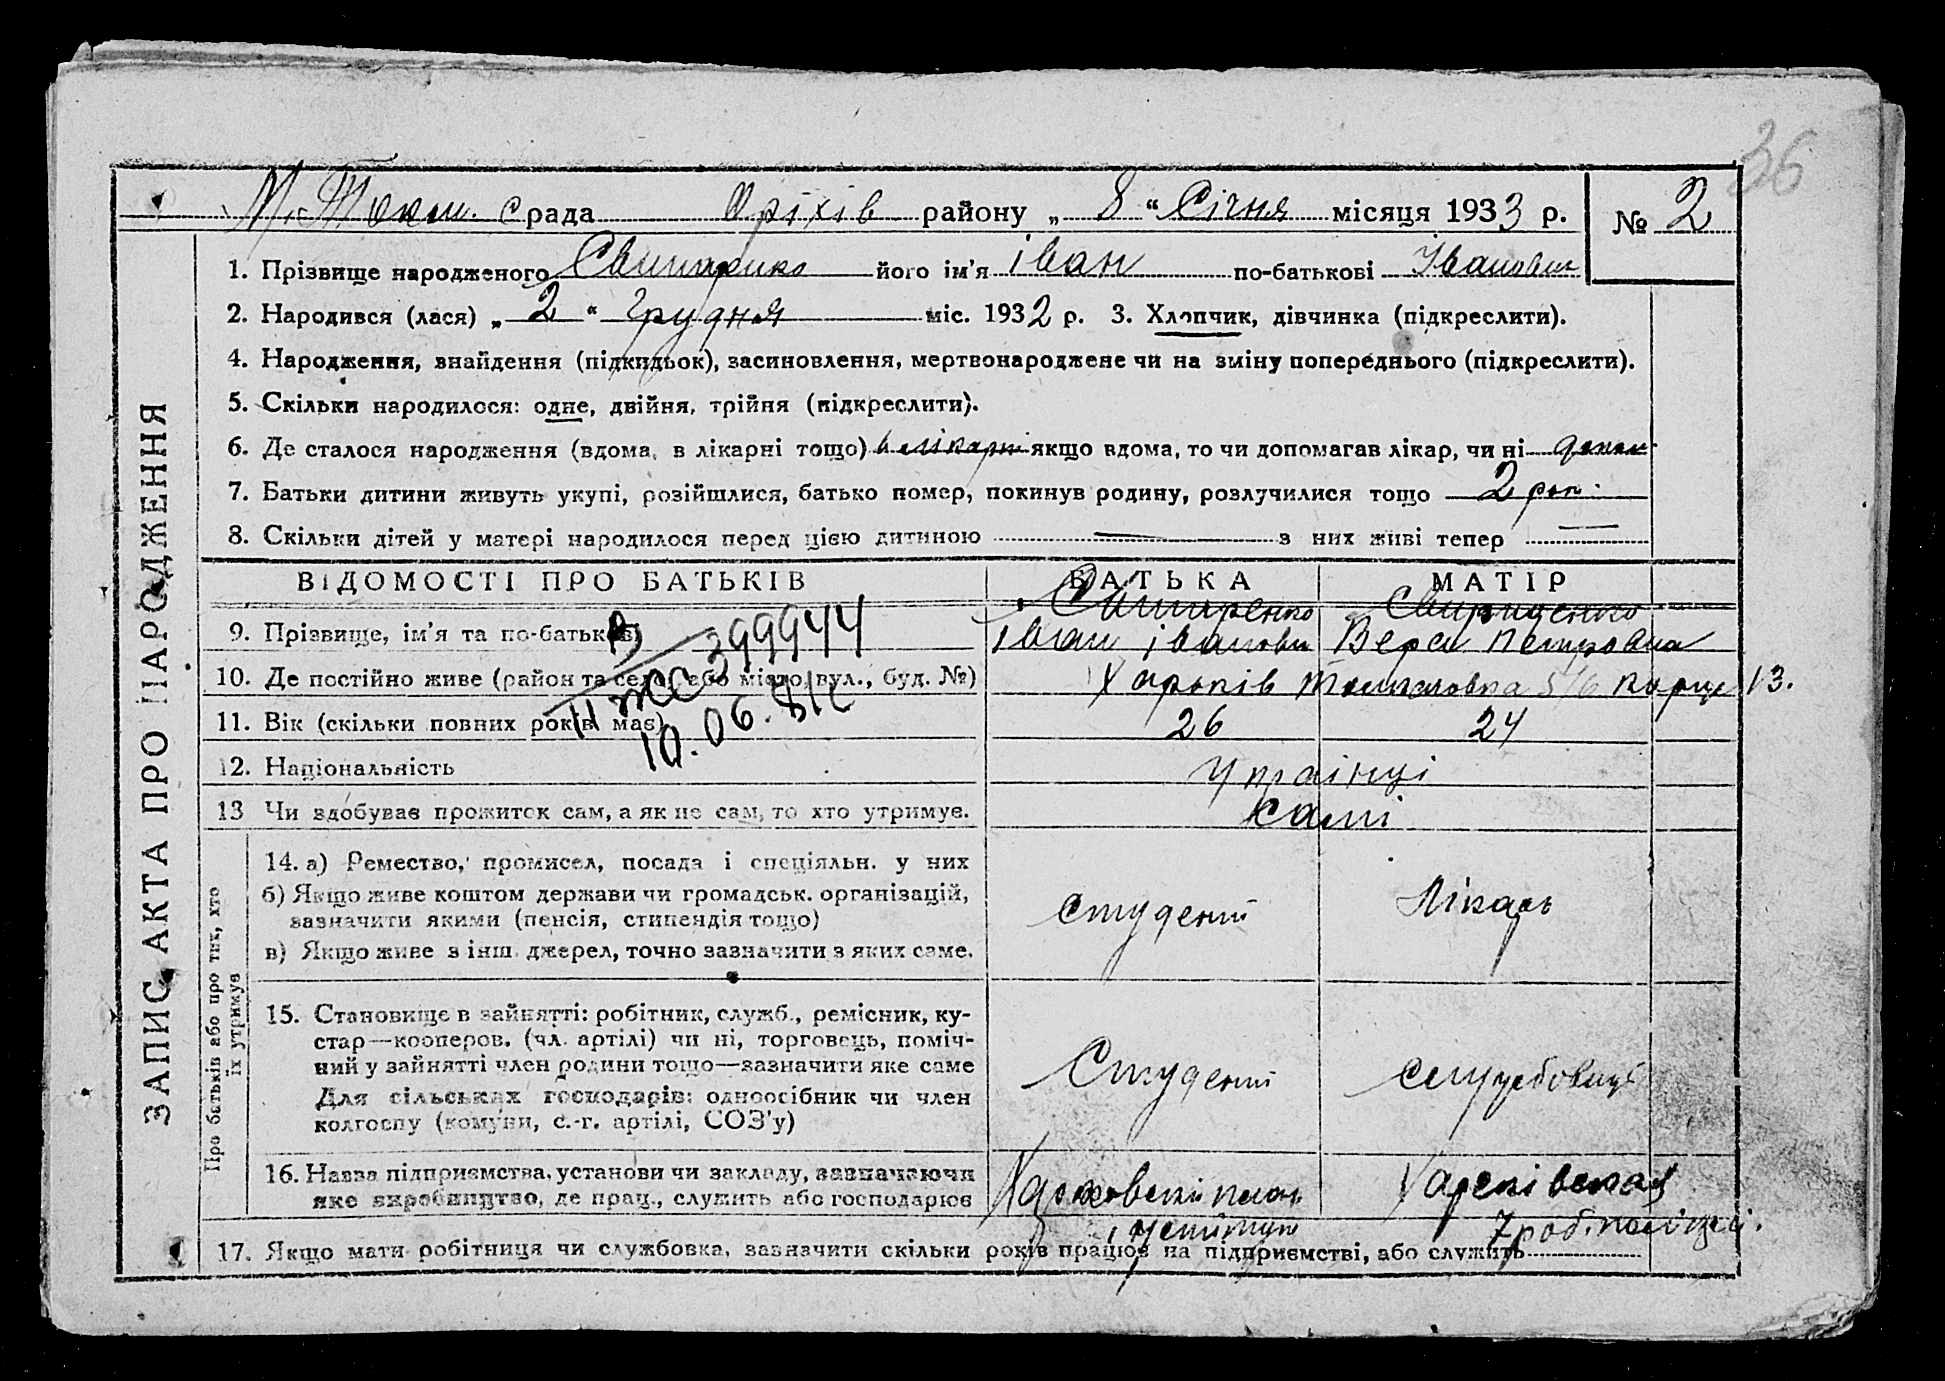 36
М. Токм. с рада Оріхів району „ 8 “ Січня місяця 1933 р. № 2
1. Прізвище народженого його ім’я іван по-батькові Іванович
2. Народився (лася) „ 2 “ грудня міс. 1932 р. 3. Хлопчик, дівчинка (підкреслити).
4. Народження, внайдення (підкидьок), засиновлення, мертвонароджене чи на зміну попереднього (підкреслити).
5. Скільки народилося: одне, двійня, трійня (підкреслити).
6. Де сталося народження (вдома, в лікарні тощо) в лікарні якщо вдома, то чи допомагав лікар, чи ні
7. Батьки дитини живуть укупі, розійшлися, батько помер, покинув родину, розлучилися тощо 2 рок.
8. Скільки дітей у матері народилося перед цією дитиною — з них живі тепер —
ЗАПИС АКТА ПРО НАРОДЖЕННЯ
ВІДОМОСТІ ПРО БАТЬКІВ БАТЬКА МАТІР
9. Прізвище, ім’я та по-батькові
іван іванович Вера Петровна
10. Де постійно живе (район та село, або місто, вул., буд. №) Харьків 5/6 13.
11. Вік (скільки повних років має) 26 24
II ЖС 399944
10.06.81
12. Національність Українці
13 Чи здобуває прожиток сам, а як не сам, то хто утримує. сами
Про батьків або про тих, хто їх утримує
14. а) Ремество, промисел, посада і спеціяльн. у них
б) Якщо живе коштом держави чи громадськ. організацій,
зазначити якими (пенсія, стипендія тощо)
в) Якщо живе з інш. джерел, точно зазначити з яких саме.
студент Лікарь
15. Становище в зайнятті: робітник, служб., ремісник, ку-
стар—кооперов. (чл. артілі) чи ні, торговець, поміч-
ний у зайнятті член родини тощо—зазначити яке саме
Для сільських господарів: одноосібник чи член
колгоспу (комуни, с.-г. артілі, СОЗ’у)
Студент службовиця
16. Назва підприємства, установи чи закладу, зазначаючи
яке виробництво, де прац., служить або господарює
інститут 7 роб.
17. Якщо мати робітниця чи службовка, зазначити скільки років працює на підприємстві, або служить